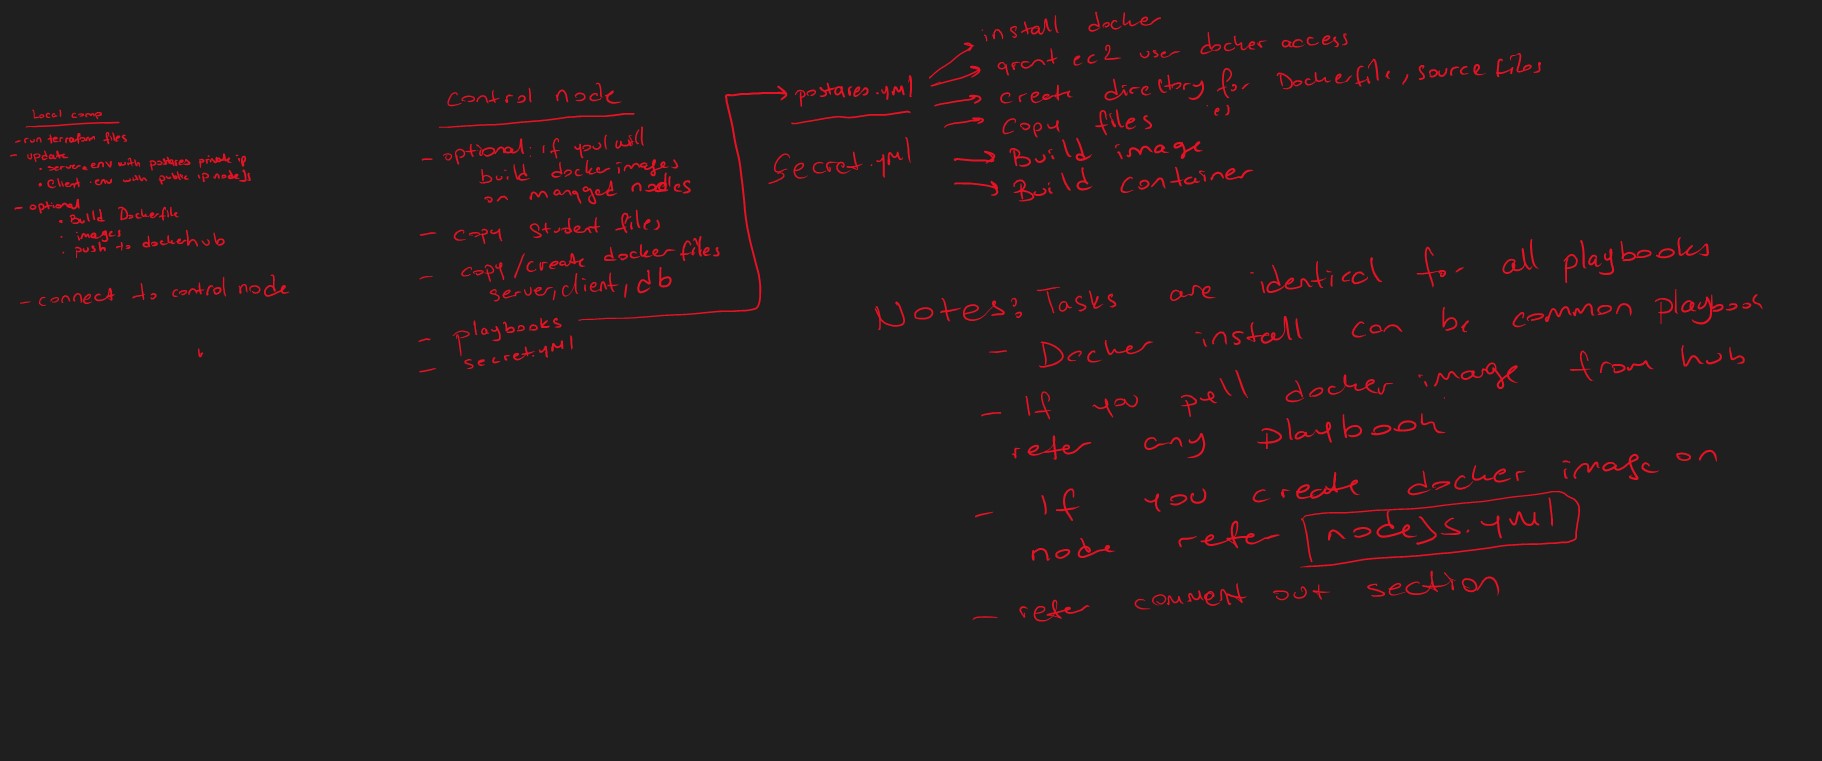 Local comp
- run terraform files
- update
• server.env with postgres private ip
• Client .env with public ip nodejs
- optional
• Build Dockerfile
• images
• push to dockerhub
- connect to control node
Control node
- optional: if you will
build docker images
on manged nodes
- copy student files
- copy/create docker files
server, client, db
- playbooks
- secret.yml
postgres.yml
Secret.yml
install docker
grant ec2 user docker access
create directory for Dockerfile, source files
Copy files
Build image
Build container
Notes: Tasks are identical for all playbooks
- Docker install can be common playbook
- If you pull docker image from hub
refer any playbook
- If you create docker image on
node refer nodejs.yml
- refer comment out section